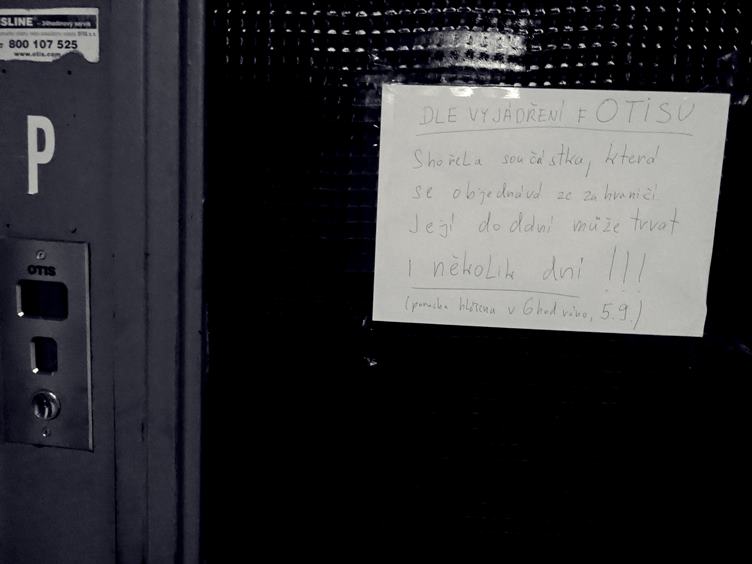 SLINE – 24hodinový servis
800 107 525
www.otis.com
P
OTIS
DLE VYJÁDŘENÍ F OTISU
Shořela součástka, která
se objednává ze zahraničí.
Její dodání může trvat
i několik dní !!!
(porucha hlášena v 6 hod ráno, 5.9.)